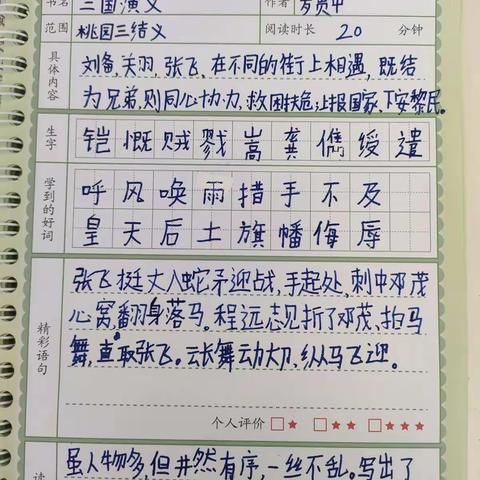 书名 三国演义 作者 罗贯中
范围 桃园三结义 阅读时长 20 分钟
具体内容
刘备,关羽,张飞,在不同的街上相遇,既结
为兄弟,则同心协力,救困扶危;上报国家,下安黎民。
生字 铠 慨 贼 戮 嵩 龚 儁 绶 遣
学到的好词
呼风唤雨措手不及
皇天后土旗幡侮辱
精彩语句
张飞挺丈八蛇矛迎战,手起处,刺中邓茂
心窝,翻身落马。程远志见折了邓茂,拍马
舞,直取张飞。云长舞动大刀,纵马飞迎。
个人评价 □★ □★★ □★★★
读
虽人物多,但井然有序,一丝不乱。写出了